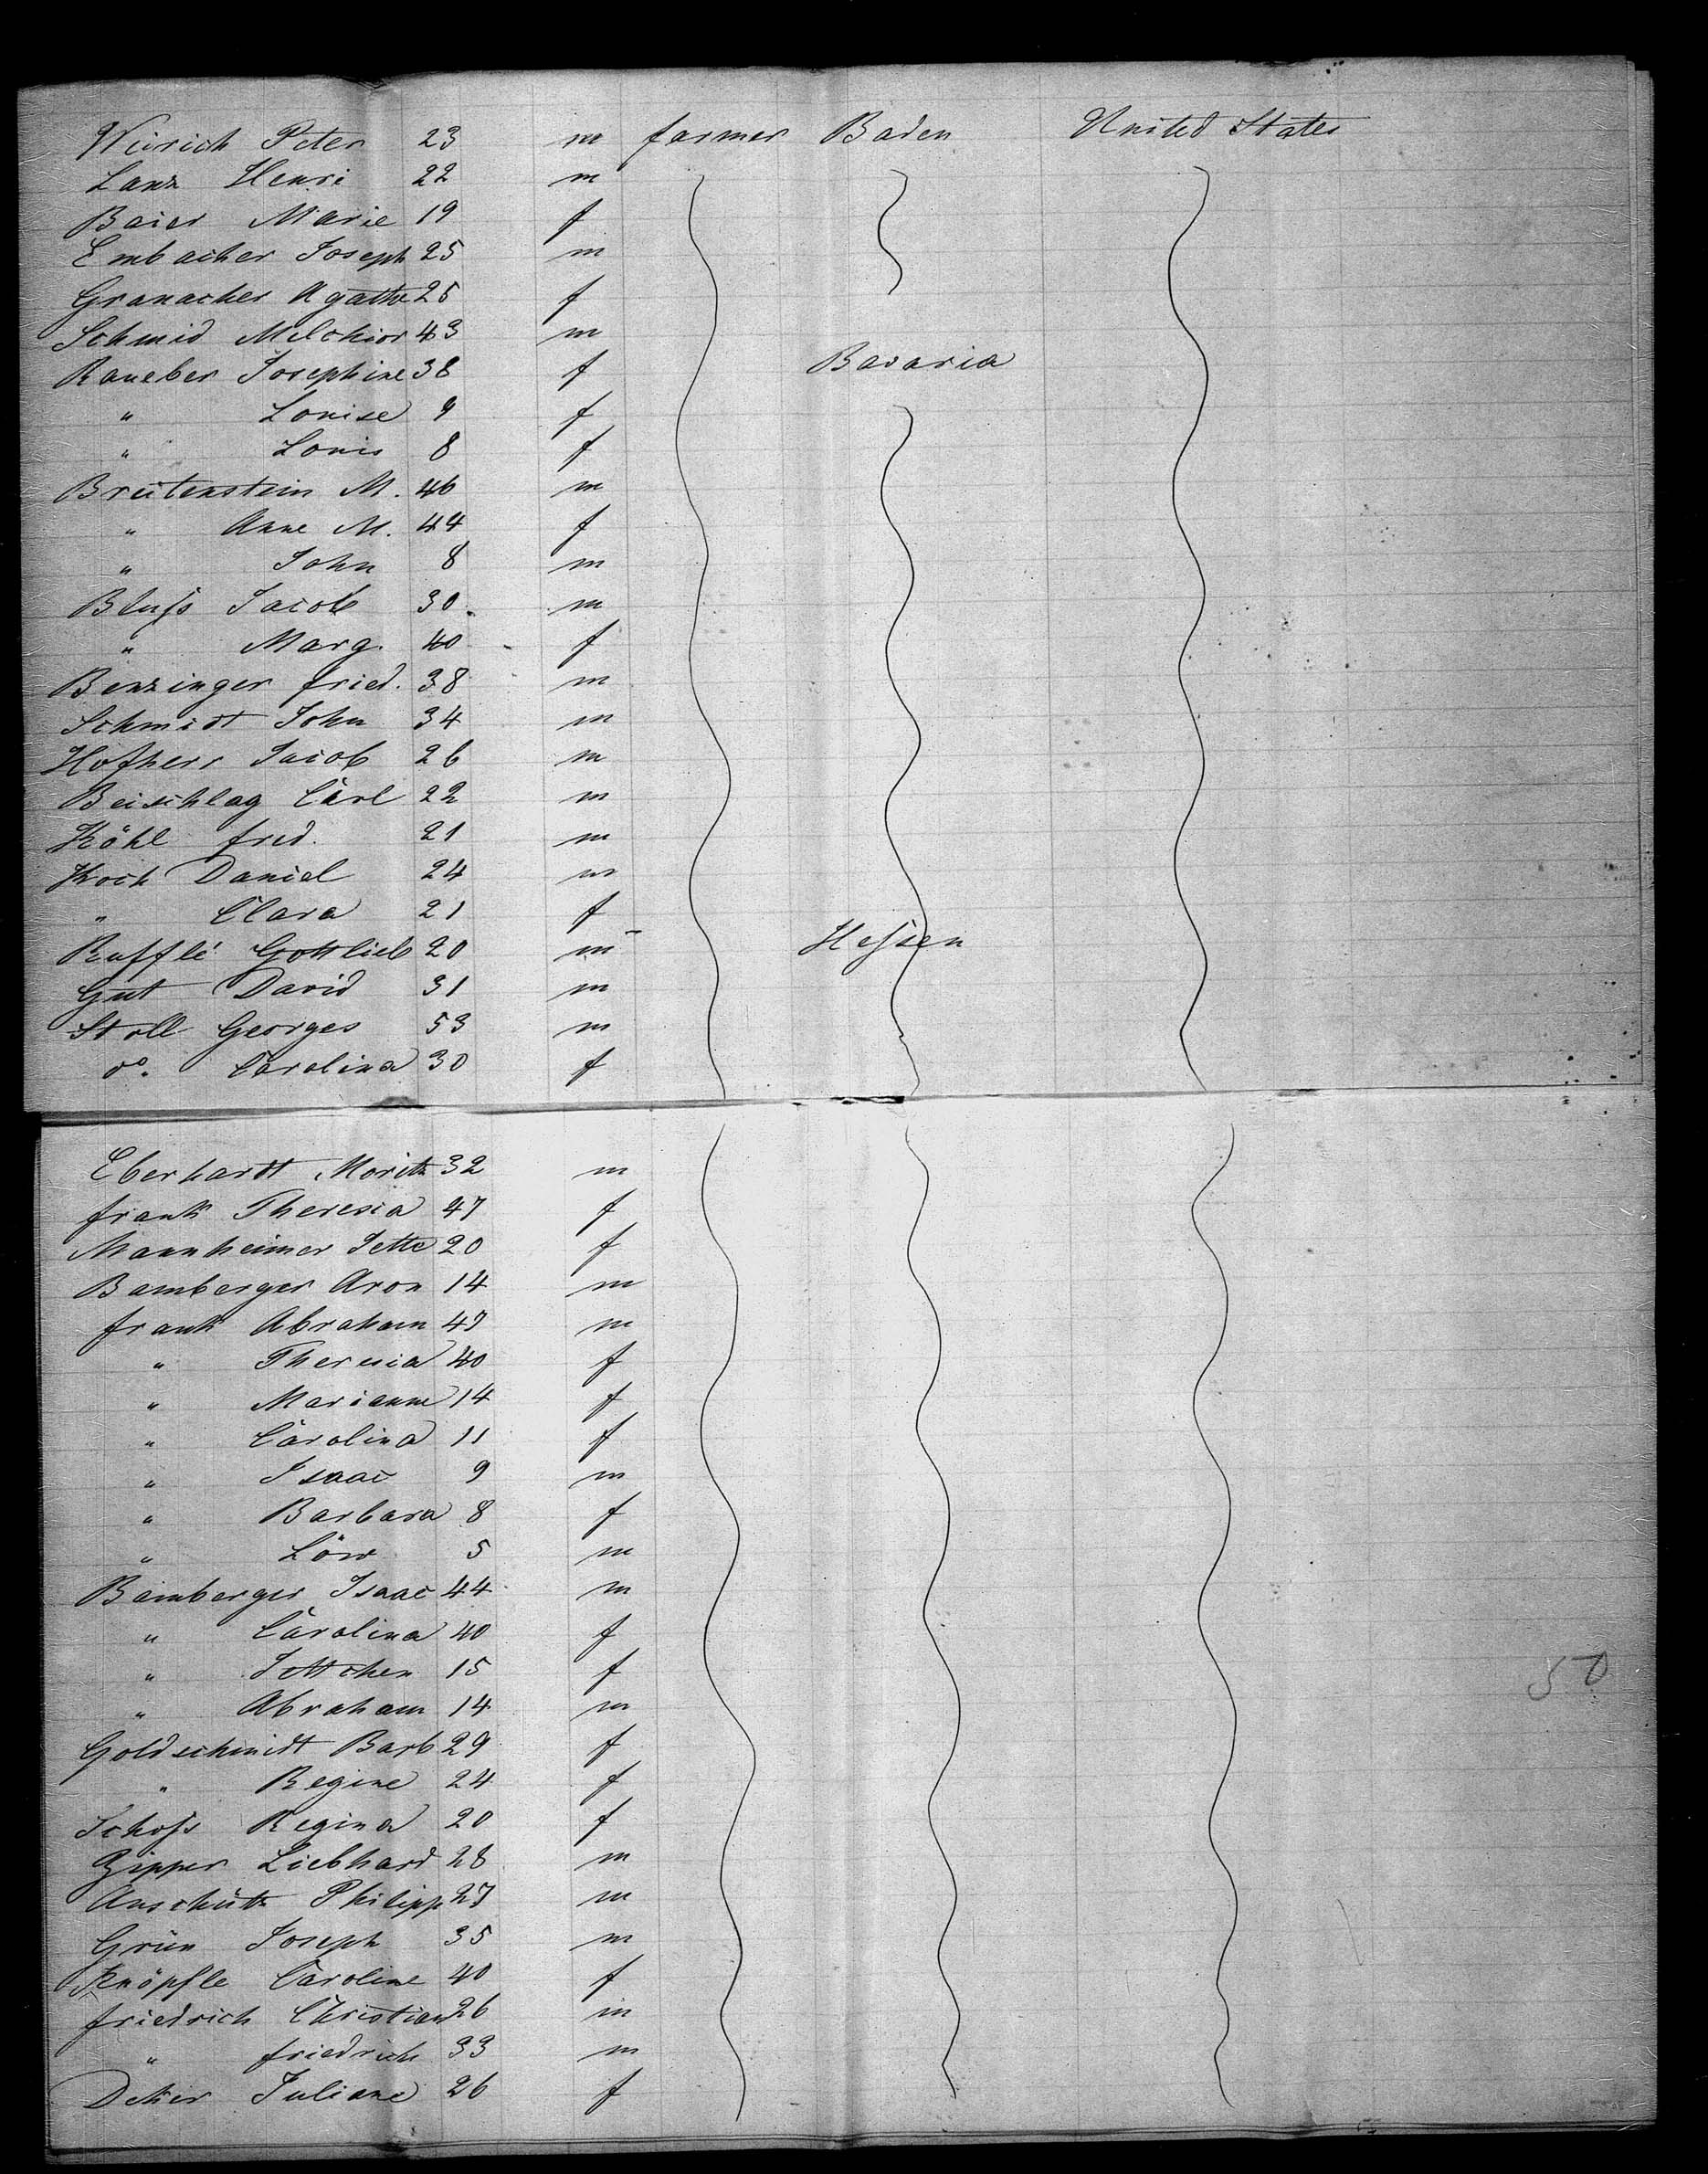 Weirich Peter 23 m farmer Baden United States
Lanz Henri 22 m
Baier Marie 19 f
Embacher Joseph 25 m
Granacher Agathe 25 f
Schmid Melchior 43 m
Raueber Josephine 38 f Bavaria
" Louise 9 f
" Louis 8 f
Breitenstein M. 46 m
" Anne M. 44 f
" John 8 m
Bluss Jacob 30 m
" Marg. 40 f
Benzinger fried. 38 m
Schmidt John 34 m
Hofherr Jacob 26 m
Beischlag Carl 22 m
Köhl fred. 21 m
Koch Daniel 24 m
" Clara 21 f
Rufflé Gottlieb 20 m Hessen
Gut David 31 m
Stoll Georges 53 m
do. Carolina 30 f
Eberhardt Moritz 32 m
frank Theresia 47 f
Mannheimer Jette 20 f
Bamberger Aron 14 m
frank Abraham 47 m
" Theresia 40 f
" Marianne 14 f
" Carolina 11 f
" Isaac 9 m
" Barbara 8 f
" Löw 5 m
Bamberger Isaac 44 m
" Carolina 40 f
" Jettchen 15 f
" Abraham 14 m
Goldschmidt Barb 29 f
" Regine 24 f
Schoss Regina 20 f
Zipper Liebhard 28 m
Anschütz Philipp 27 m
Grün Joseph 35 m
Knöpfle Caroline 40 f
friedrich Christian 26 m
" friedrich 33 m
Deker Juliane 26 f
50